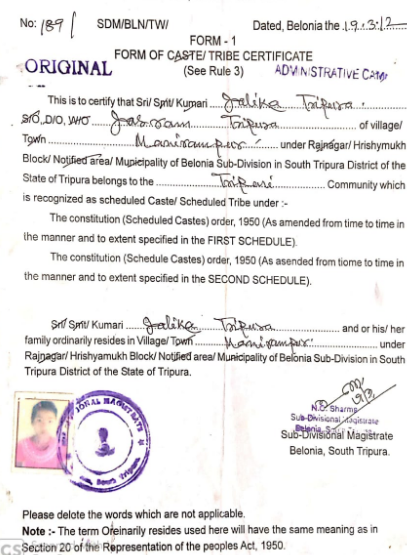 No: 189/ SDM/BLN/TW/ Dated, Belonia the 19.3.12
FORM - 1
FORM OF CASTE/ TRIBE CERTIFICATE
ORIGINAL (See Rule 3) ADMINISTRATIVE CAMP
This is to certify that Sri/ Smt/ Kumari Jalika Tripura
S/O, D/O, W/O Joy ram Tripura of village/
Town Manirampur under Rajnagar/ Hrishymukh
Block/ Notified area/ Municipality of Belonia Sub-Division in South Tripura District of the
State of Tripura belongs to the Tripuri Community which
is recognized as scheduled Caste/ Scheduled Tribe under :-
The constitution (Scheduled Castes) order, 1950 (As amended from time to time in
the manner and to extent specified in the FIRST SCHEDULE).
The constitution (Schedule Castes) order, 1950 (As asended from tiome to time in
the manner and to extent specified in the SECOND SCHEDULE).
Sri/ Smt/ Kumari Jalika Tripura and or his/ her
family ordinarily resides in Village/ Town Manirampur under
Rajnagar/ Hrishyamukh Block/ Notified area/ Municipality of Belonia Sub-Division in South
Tripura District of the State of Tripura.
N.C. Sharma
Sub-Divisional Magistrate
Sub-Divisional Magistrate
Belonia, South Tripura.
Please delote the words which are not applicable.
Note :- The term Oreinarily resides used here will have the same meaning as in
Section 20 of the Representation of the peoples Act, 1950.